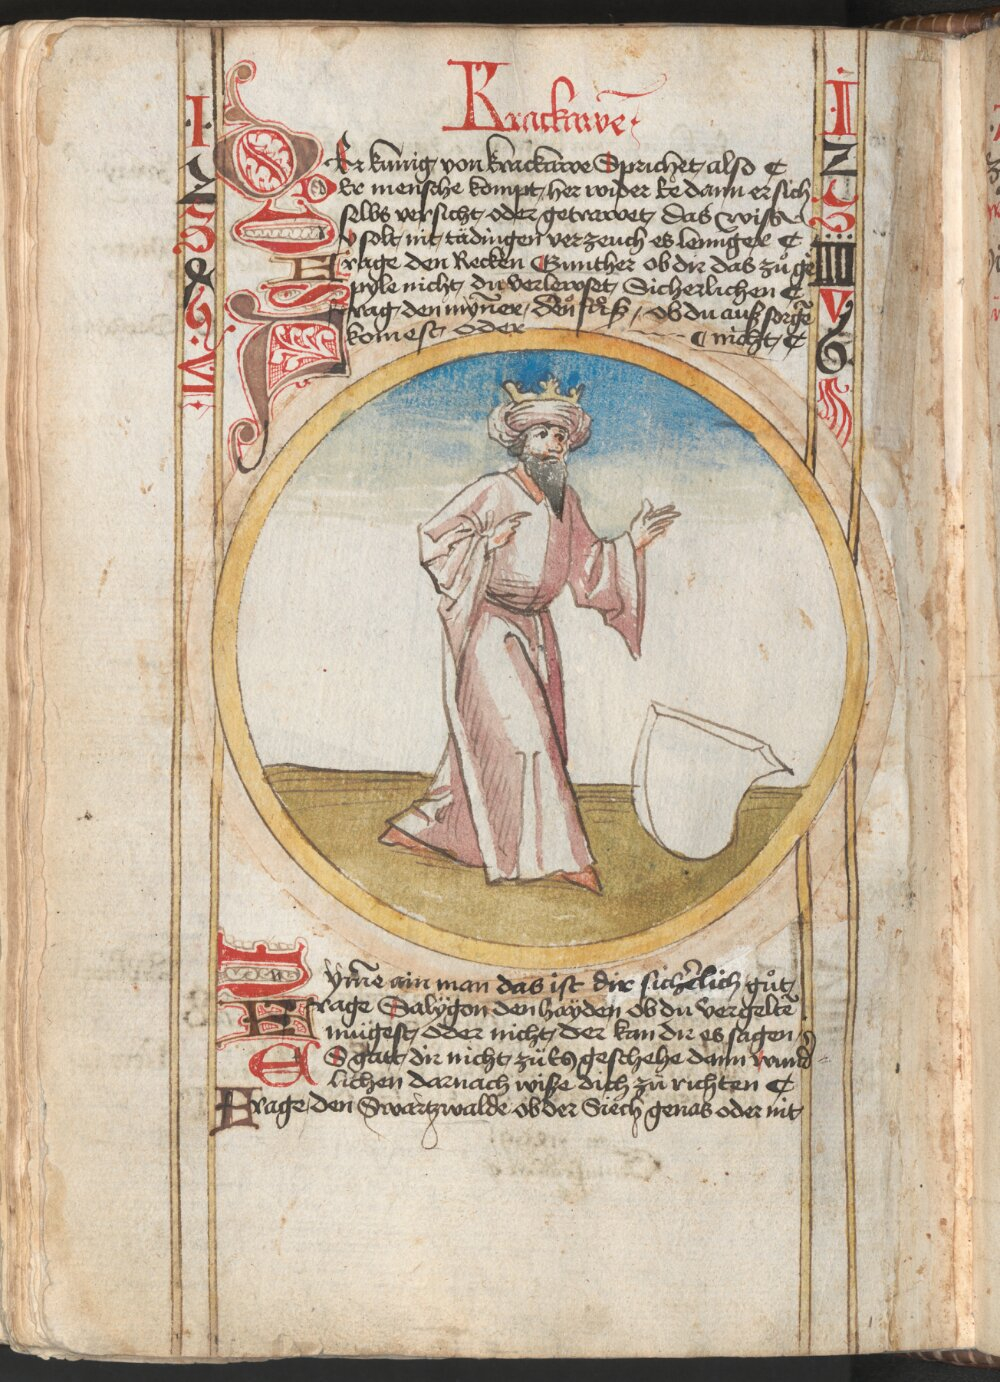 Krackawe
Der künig von krackawe Sprichet also
Der mensche kompt her wider Ee dann er sich
selbs versicht oder getrawet Das wiss
Du solt nit tädingen verzeuch es lennger
Frage den Recken Gunther ob dir das zů ge
spyle nicht du verlewset Sicherlichen
Frag den ob du auß sorgē
komest oder nicht
Nyme ain man das ist dir sicherlich gůt
Frage Salÿgon den hayden ob du vergeltē
mügest oder nicht der kan dir es sagen
Es gatt dir nicht zü Es geschehe dann wund
lichen darnach wisse dich zů richten
Frage den Swartzwalde ob der Siech genas oder nit